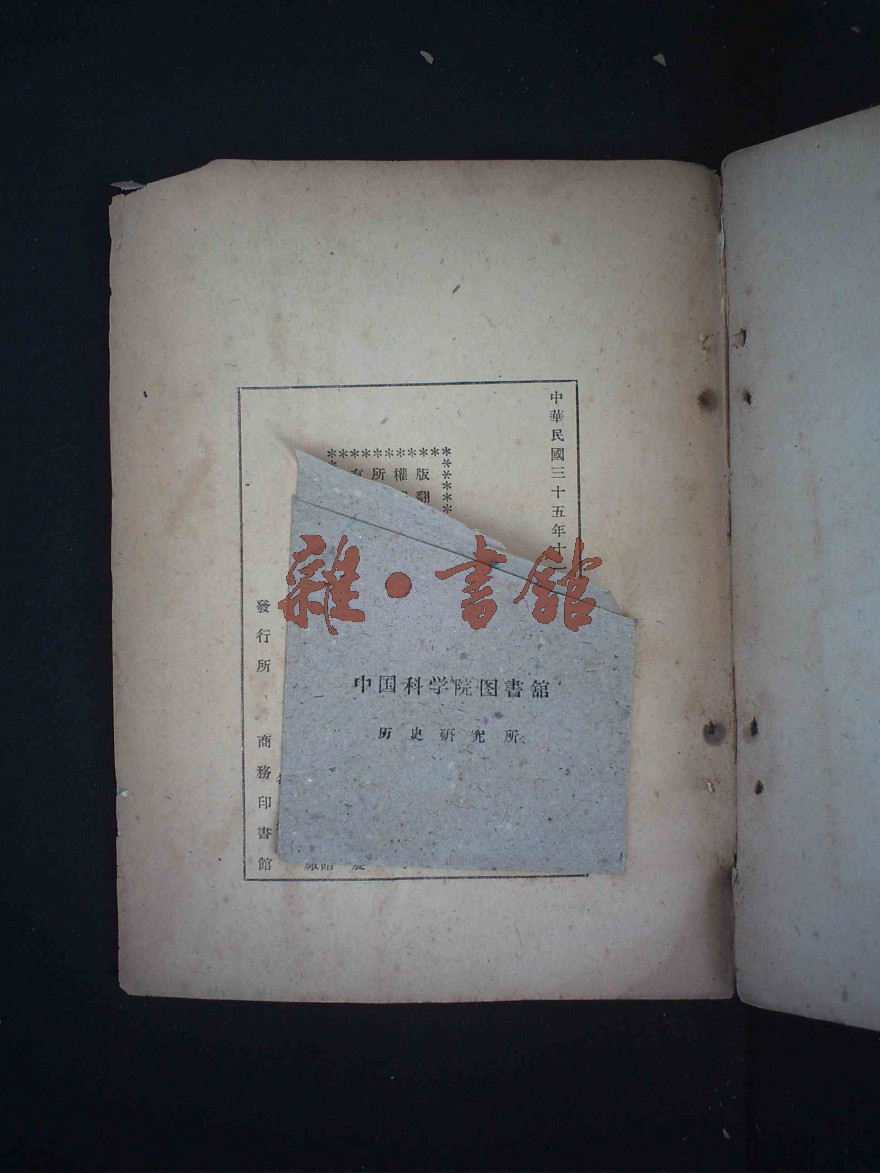 中華民國三十五年十
版權所
翻
发行所
商務印書館
雜·書館
中国科学院图書舘
历史研究所